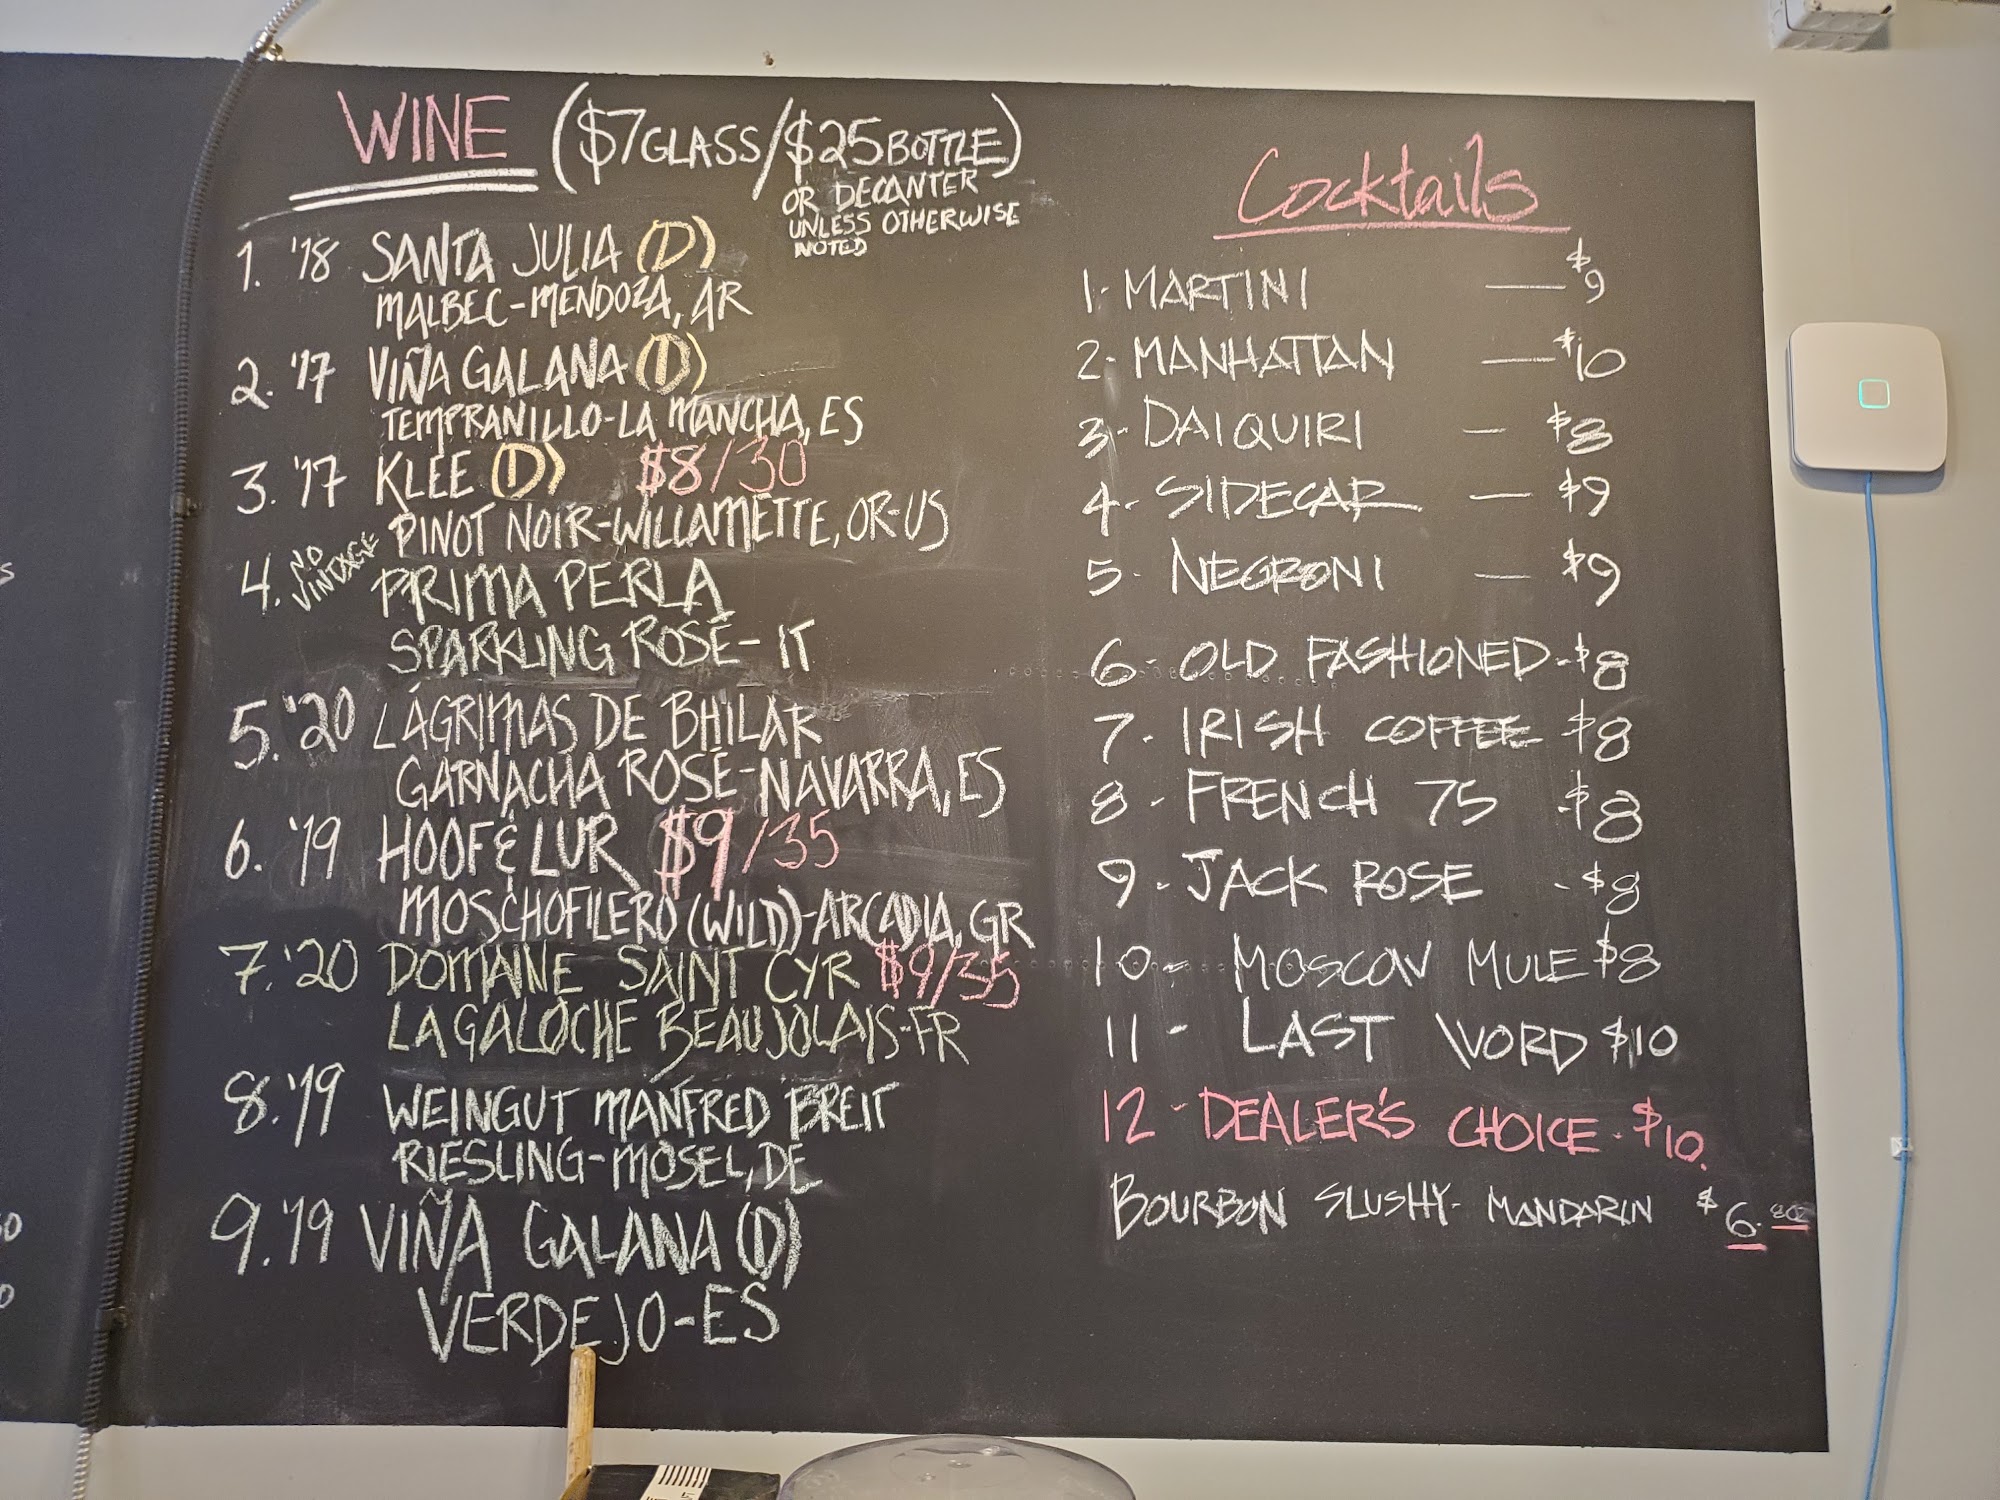 WINE ($7 GLASS/$25 BOTTLE)
OR DECANTER
UNLESS OTHERWISE
NOTED
1. '18 SANTA JULIA (D)
MALBEC-MENDOZA, AR
2. '17 VIÑA GALANA (D)
TEMPRANILLO-LA MANCHA, ES
3. '17 KLEE (D) $8/30
PINOT NOIR-WILLAMETTE, OR-US
4. NO VINTAGE PRIMA PERLA
SPARKLING ROSÉ-IT
5. '20 LÁGRIMAS DE BHILAR
GARNACHA ROSÉ-NAVARRA, ES
6. '19 HOOF & LUR $9/35
MOSCHOFILERO (WILD)-ARCADIA, GR
7. '20 DOMAINE SAINT CYR $9/35
LA GALOCHE BEAUJOLAIS-FR
8. '19 WEINGUT MANFRED BREIT
RIESLING-MOSEL, DE
9. '19 VIÑA GALANA (D)
VERDEJO-ES
Cocktails
1- MARTINI — $9
2- MANHATTAN — $10
3- DAIQUIRI — $8
4- SIDECAR — $9
5- NEGRONI — $9
6- OLD FASHIONED - $8
7- IRISH COFFEE $8
8- FRENCH 75 - $8
9- JACK ROSE - $8
10- MOSCOW MULE $8
11- LAST WORD $10
12- DEALER'S CHOICE- $10.
BOURBON SLUSHY- MANDARIN $6.